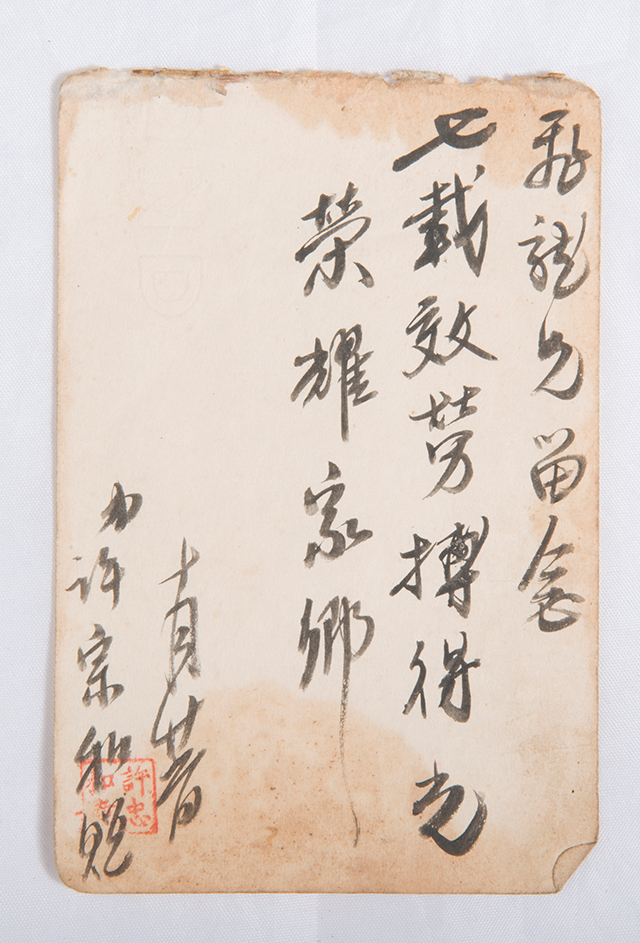 龍兄留念
七載效勞搏得光
榮耀家鄉
十月廿
許宗和贈
許忠